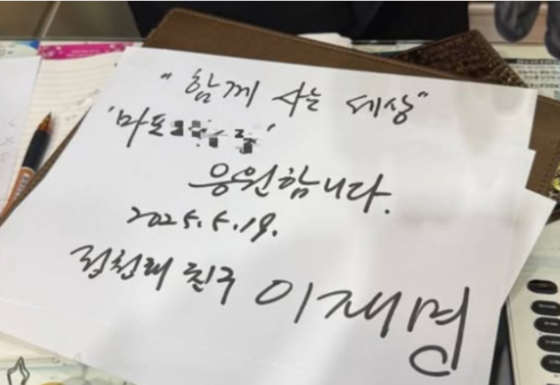 "함께 사는 세상"
'마포 '
응원합니다.
2025.5.19.
친구 이재명